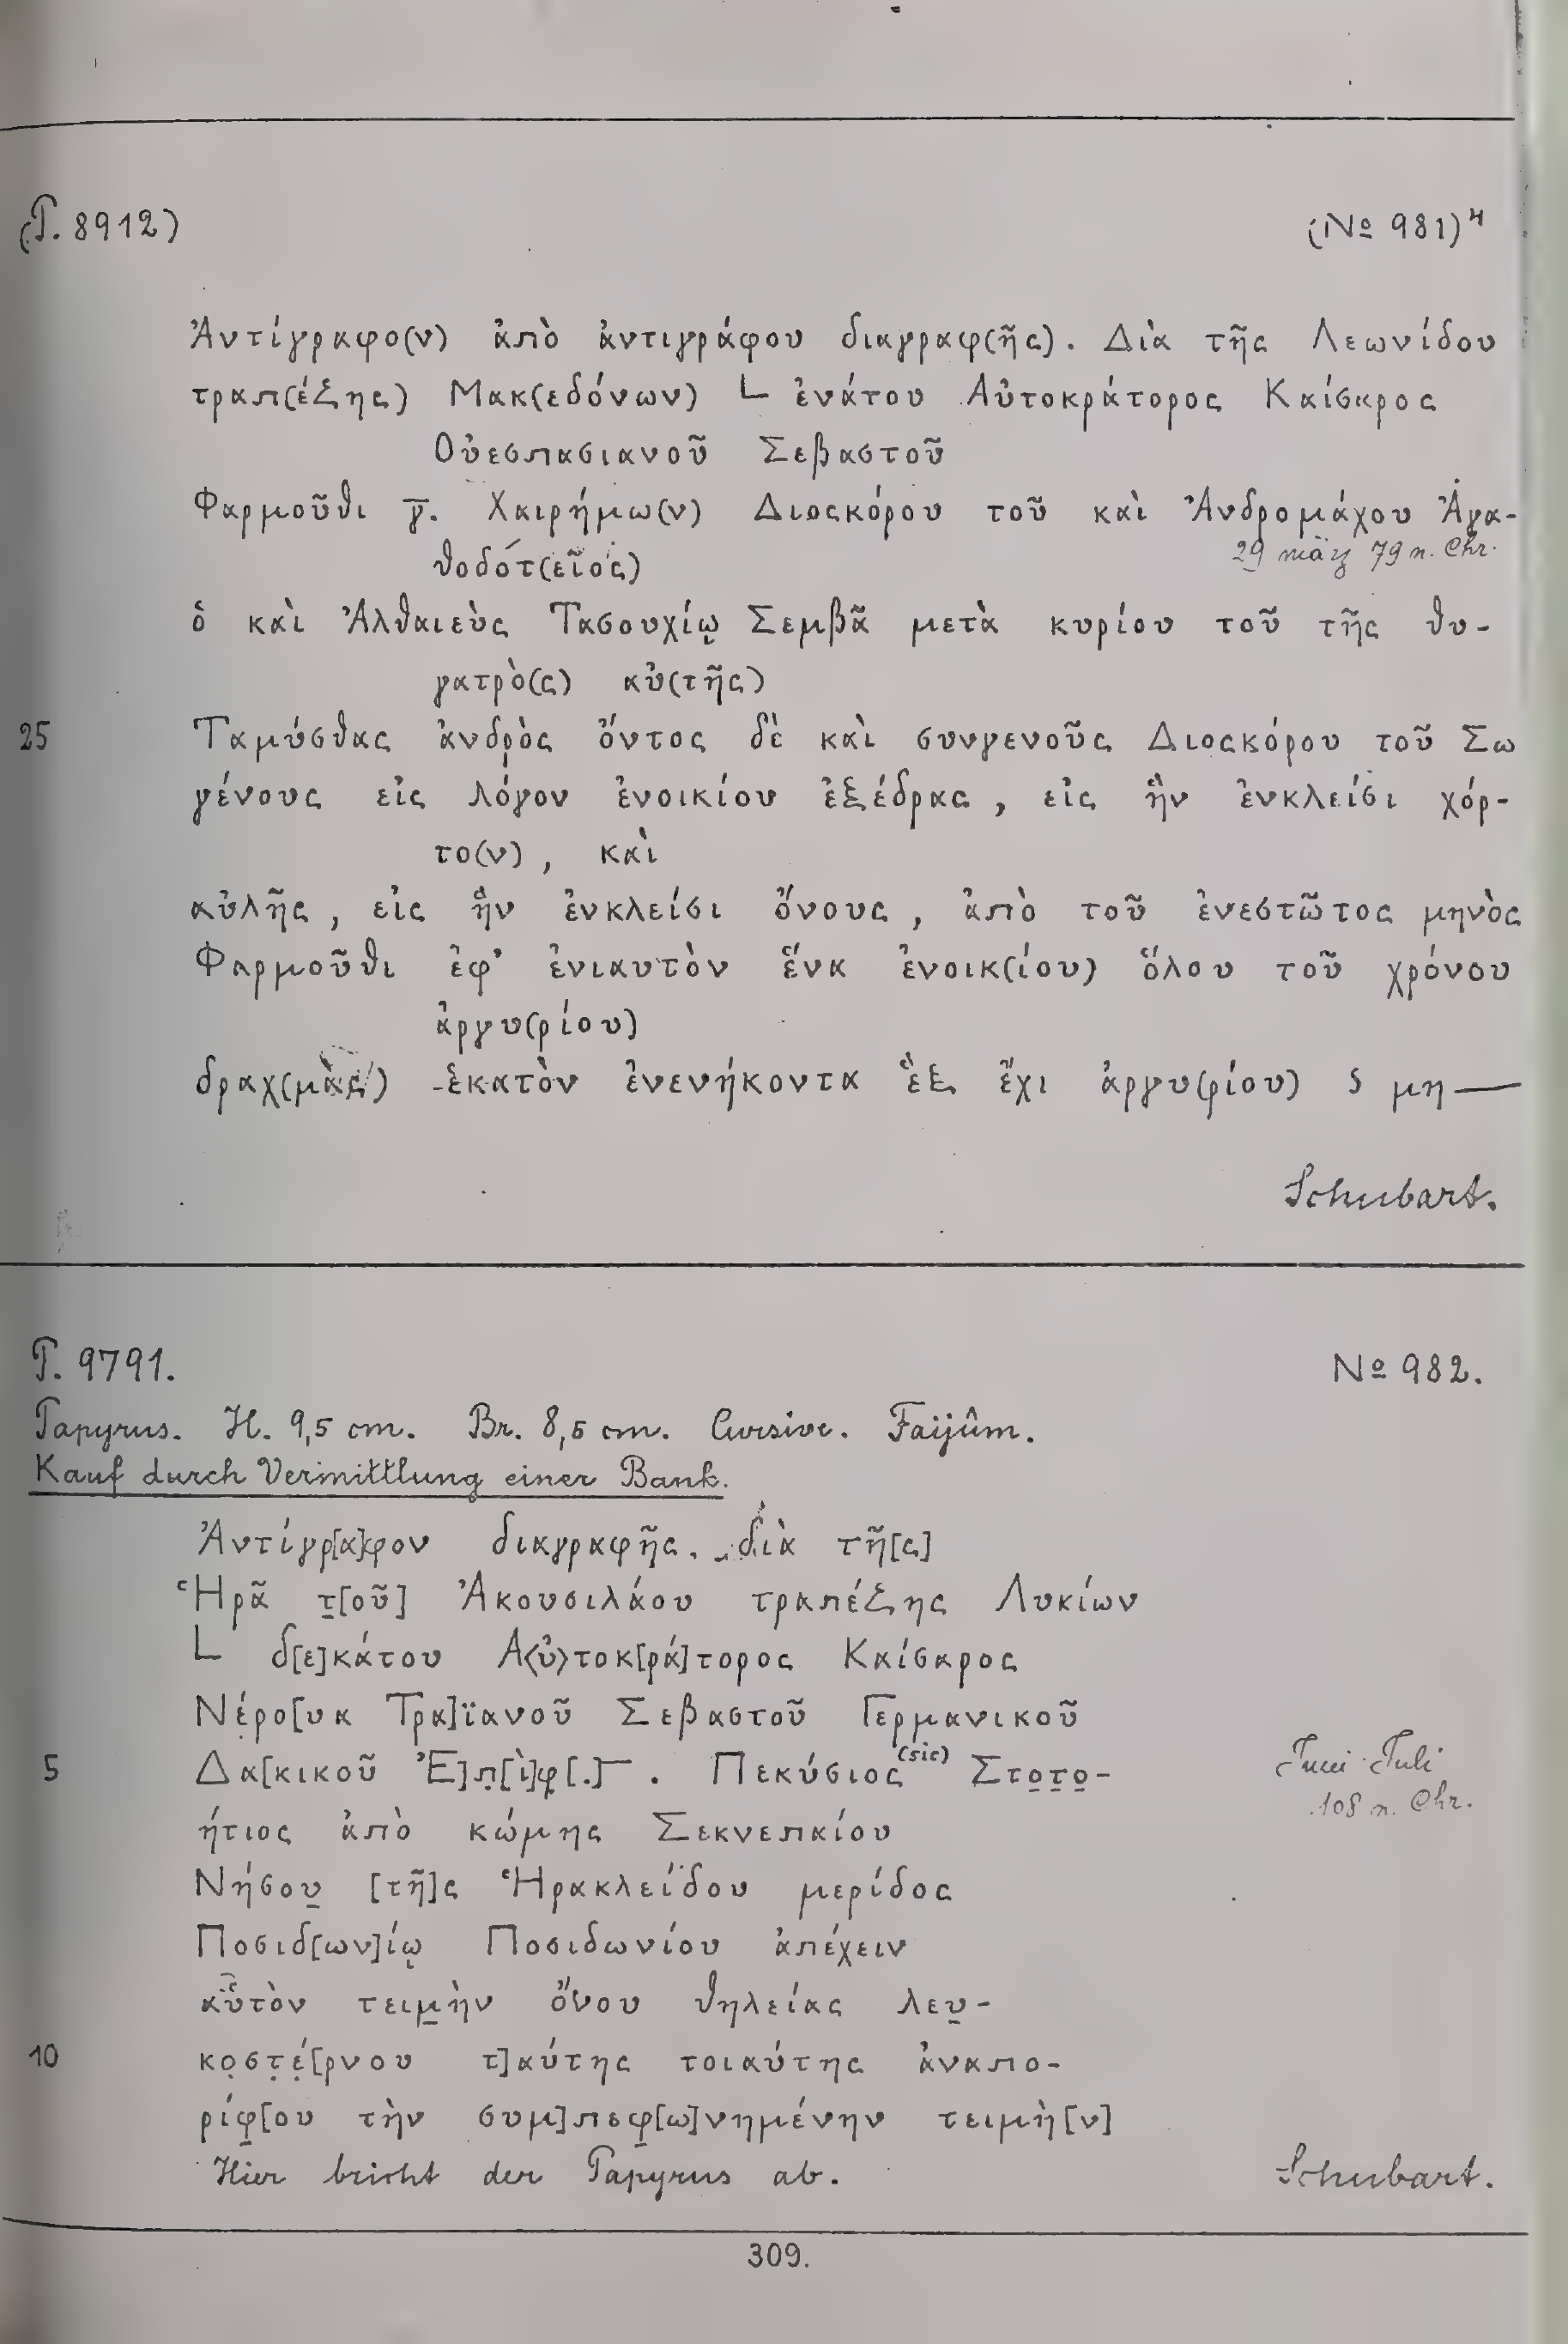 (P. 8912) (No 981)4
Ἀντίγραφο(ν) ἀπὸ ἀντιγράφου διαγραφ(ῆς). Διὰ τῆς Λεωνίδου
τραπ(έζης) Μακ(εδόνων) L ἐνάτου Αὐτοκράτορος Καίσαρος
Οὐεσπασιανοῦ Σεβαστοῦ
Φαρμοῦθι γ̅. Χαιρήμω(ν) Διοσκόρου τοῦ καὶ Ἀνδρομάχου Ἀγα-
29 März 79 n. Chr.
θοδότ(ειος)
ὁ καὶ Ἀλθαιεὺς Τασουχίῳ Σεμβᾶ μετὰ κυρίου τοῦ τῆς θυ-
γατρὸ(ς) αὐ(τῆς)
25 Ταμύσθας ἀνδρὸς ὄντος δὲ καὶ συνγενοῦς Διοσκόρου τοῦ Σω
γένους εἰς λόγον ἐνοικίου ἐξέδρας, εἰς ἣν ἐνκλείσι χόρ-
το(ν), καὶ
αὐλῆς, εἰς ἣν ἐνκλείσι ὄνους, ἀπὸ τοῦ ἐνεστῶτος μηνὸς
Φαρμοῦθι ἐφ' ἐνιαυτὸν ἕνα ἐνοικ(ίου) ὅλου τοῦ χρόνου
ἀργυ(ρίου)
δραχ(μὰς) ἑκατὸν ἐνενήκοντα ἓξ ἔχι ἀργυ(ρίου) S μη—
Schubart.
P. 9791. No 982.
Papyrus. H. 9,5 cm. Br. 8,5 cm. Cursive. Faijûm.
Kauf durch Vermittlung einer Bank.
Ἀντίγρ[α]φον διαγραφῆς. διὰ τῆ[ς]
Ἡρᾶ τ̲[οῦ] Ἀκουσιλάου τραπέζης Λυκίων
L δ[ε]κάτου Α⟨ὐ⟩τοκ[ρά]τορος Καίσαρος
Νέρο[υα Τρα]ϊανοῦ Σεβαστοῦ Γερμανικοῦ
5 Δα[κικοῦ Ἐ]π̣[ὶ]φ[.]‾. Πεκύσιος (sic) Στο̲τ̲ο̲-
Juni Juli
108 n. Chr.
ήτιος ἀπὸ κώμης Σεκνεπαίου
Νήσου̲ [τῆ]ς Ἡρακλείδου μερίδος
Ποσιδ[ων]ίῳ Ποσιδωνίου ἀπέχειν
αὐτὸν τειμ̲ὴν ὄνου θηλείας λευ̲-
10 κο̣σ̣τ̣έ̣[ρνου τ]αύτης τοιαύτης ἀναπο-
ρίφ̲[ου τὴν συμ]πεφ̲[ω]νημένην τειμὴ[ν]
Hier bricht der Papyrus ab. Schubart.
309.